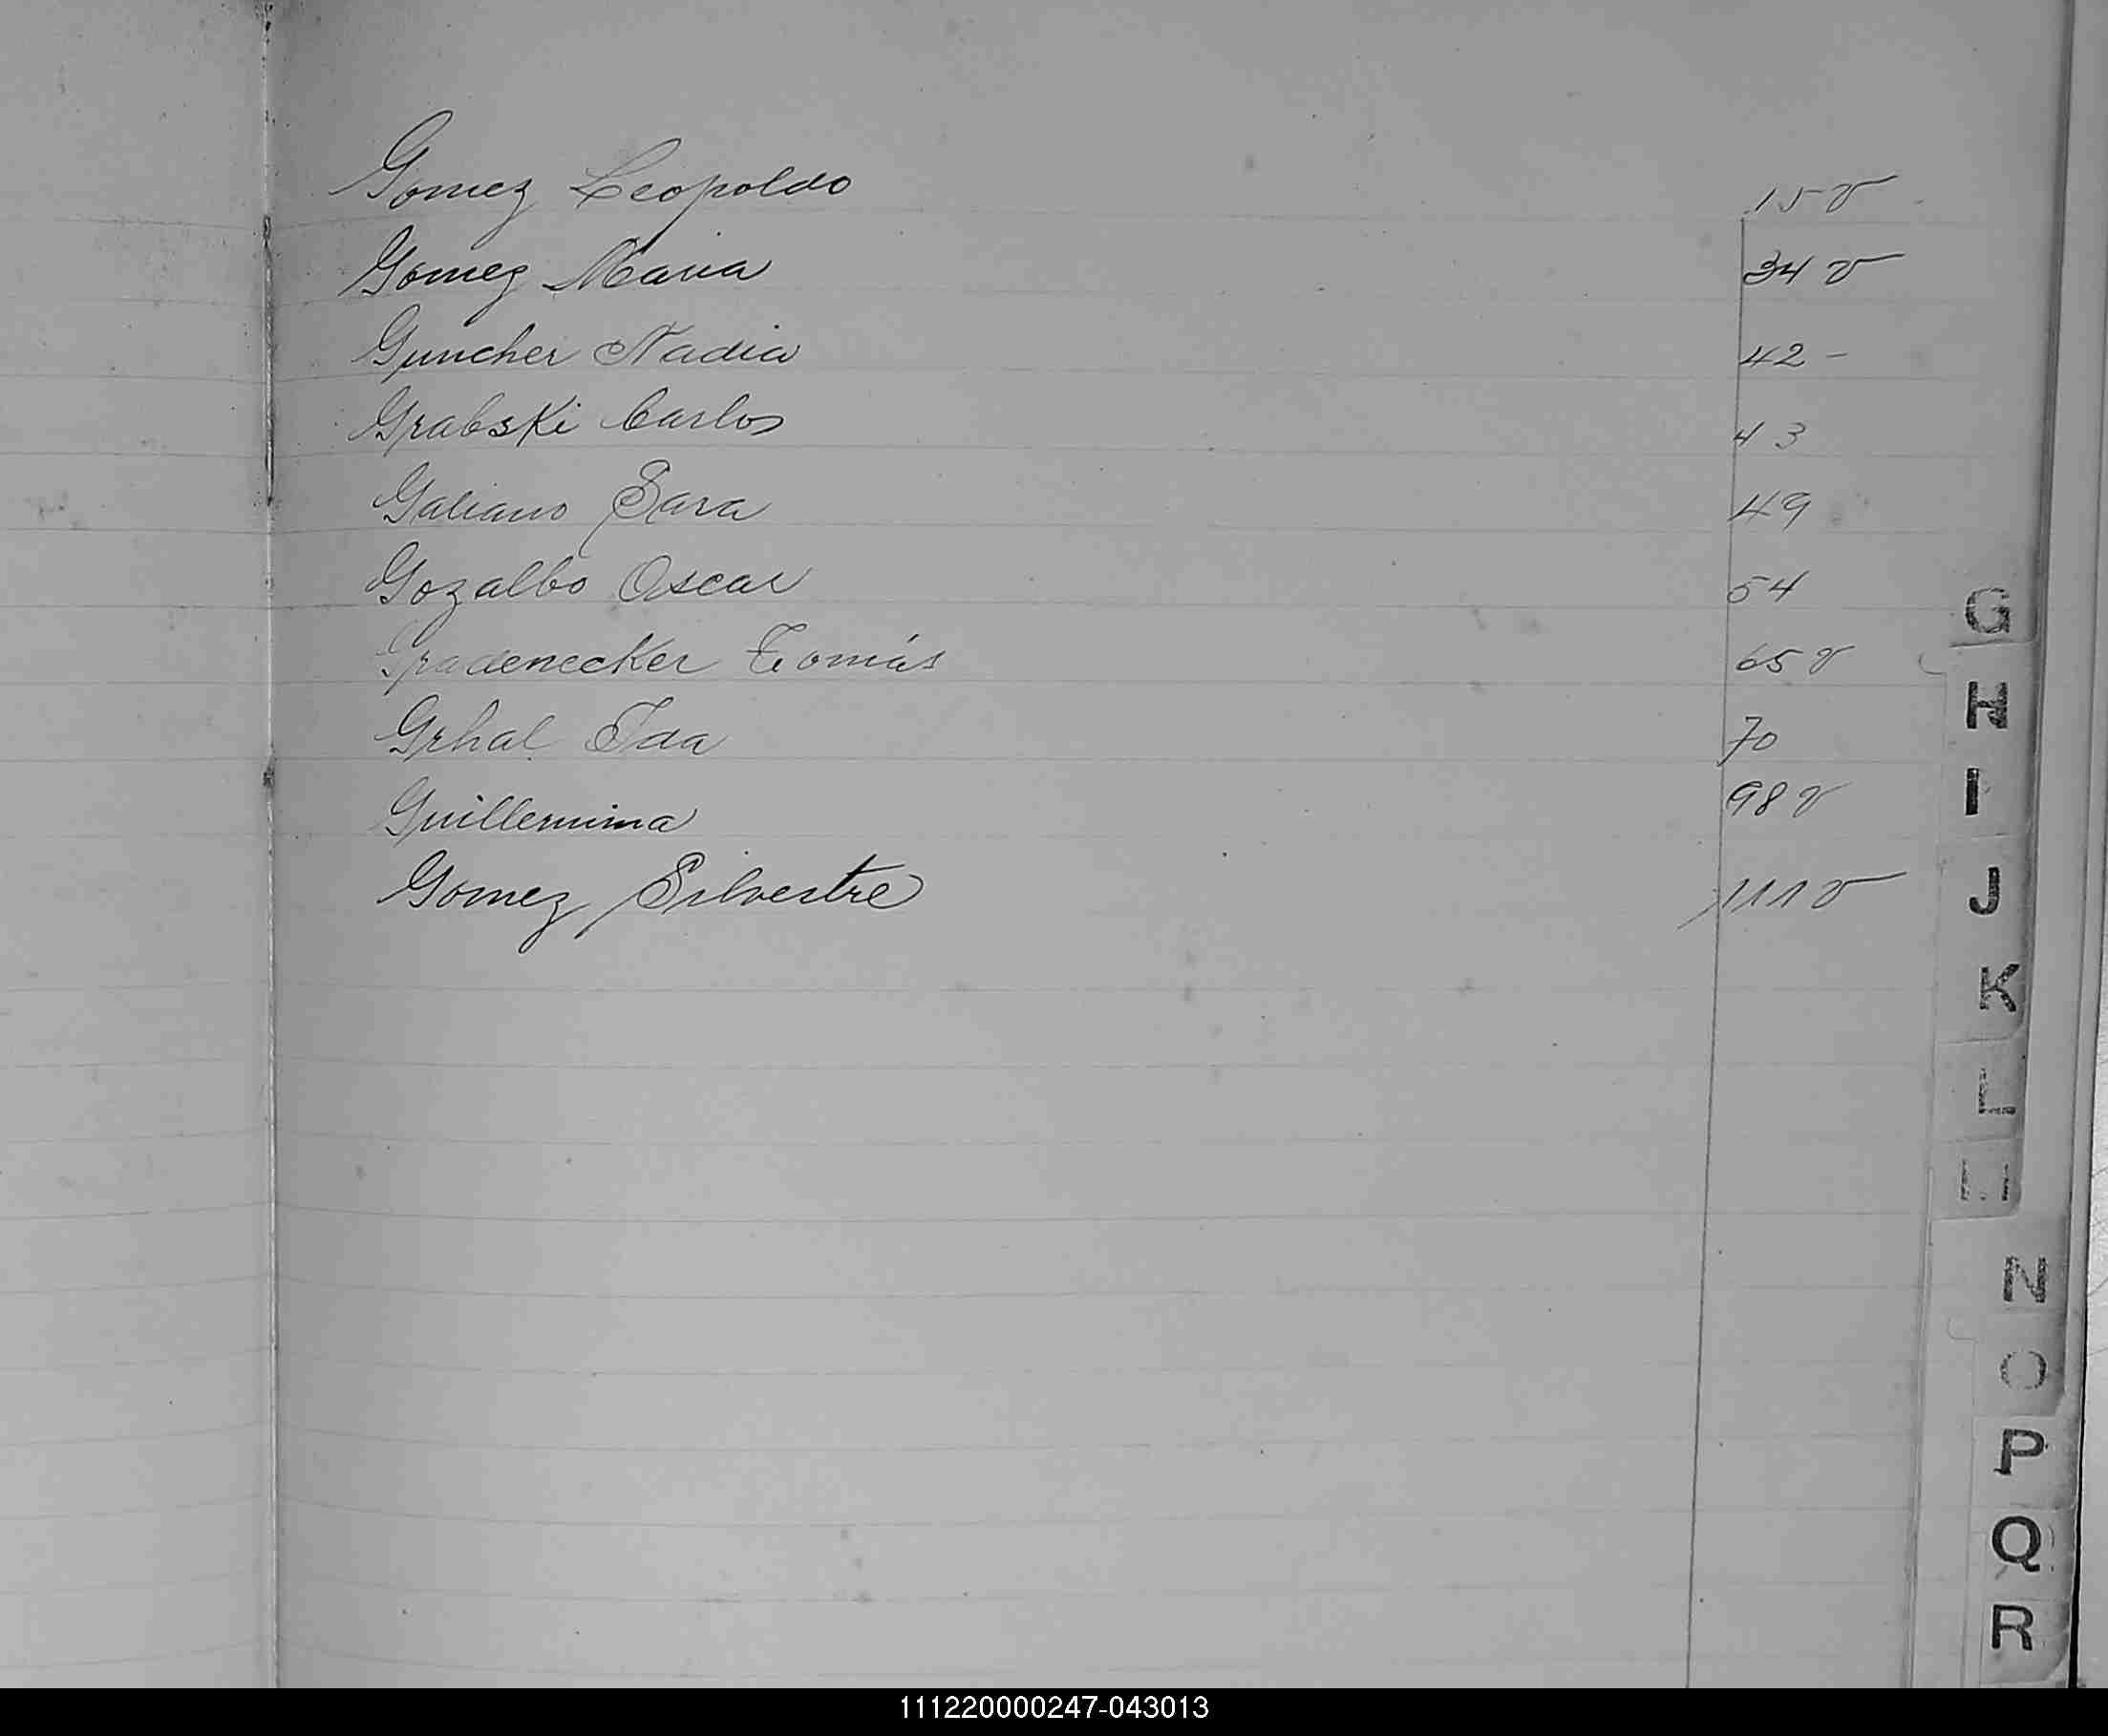 Gomez Leopoldo 15 v
Gomez Maria 34 v
Guncher Nadia 42 -
Grabski Carlos 43
Galiano Sara 49
Gozalbo Oscar 54
Gradenecker Tomás 65 v
Grhal Ida 70
Guillermina 98 v
Gomez Silvestre 111 v
G
H
I
J
K
L
M
N
O
P
Q
R
111220000247-043013